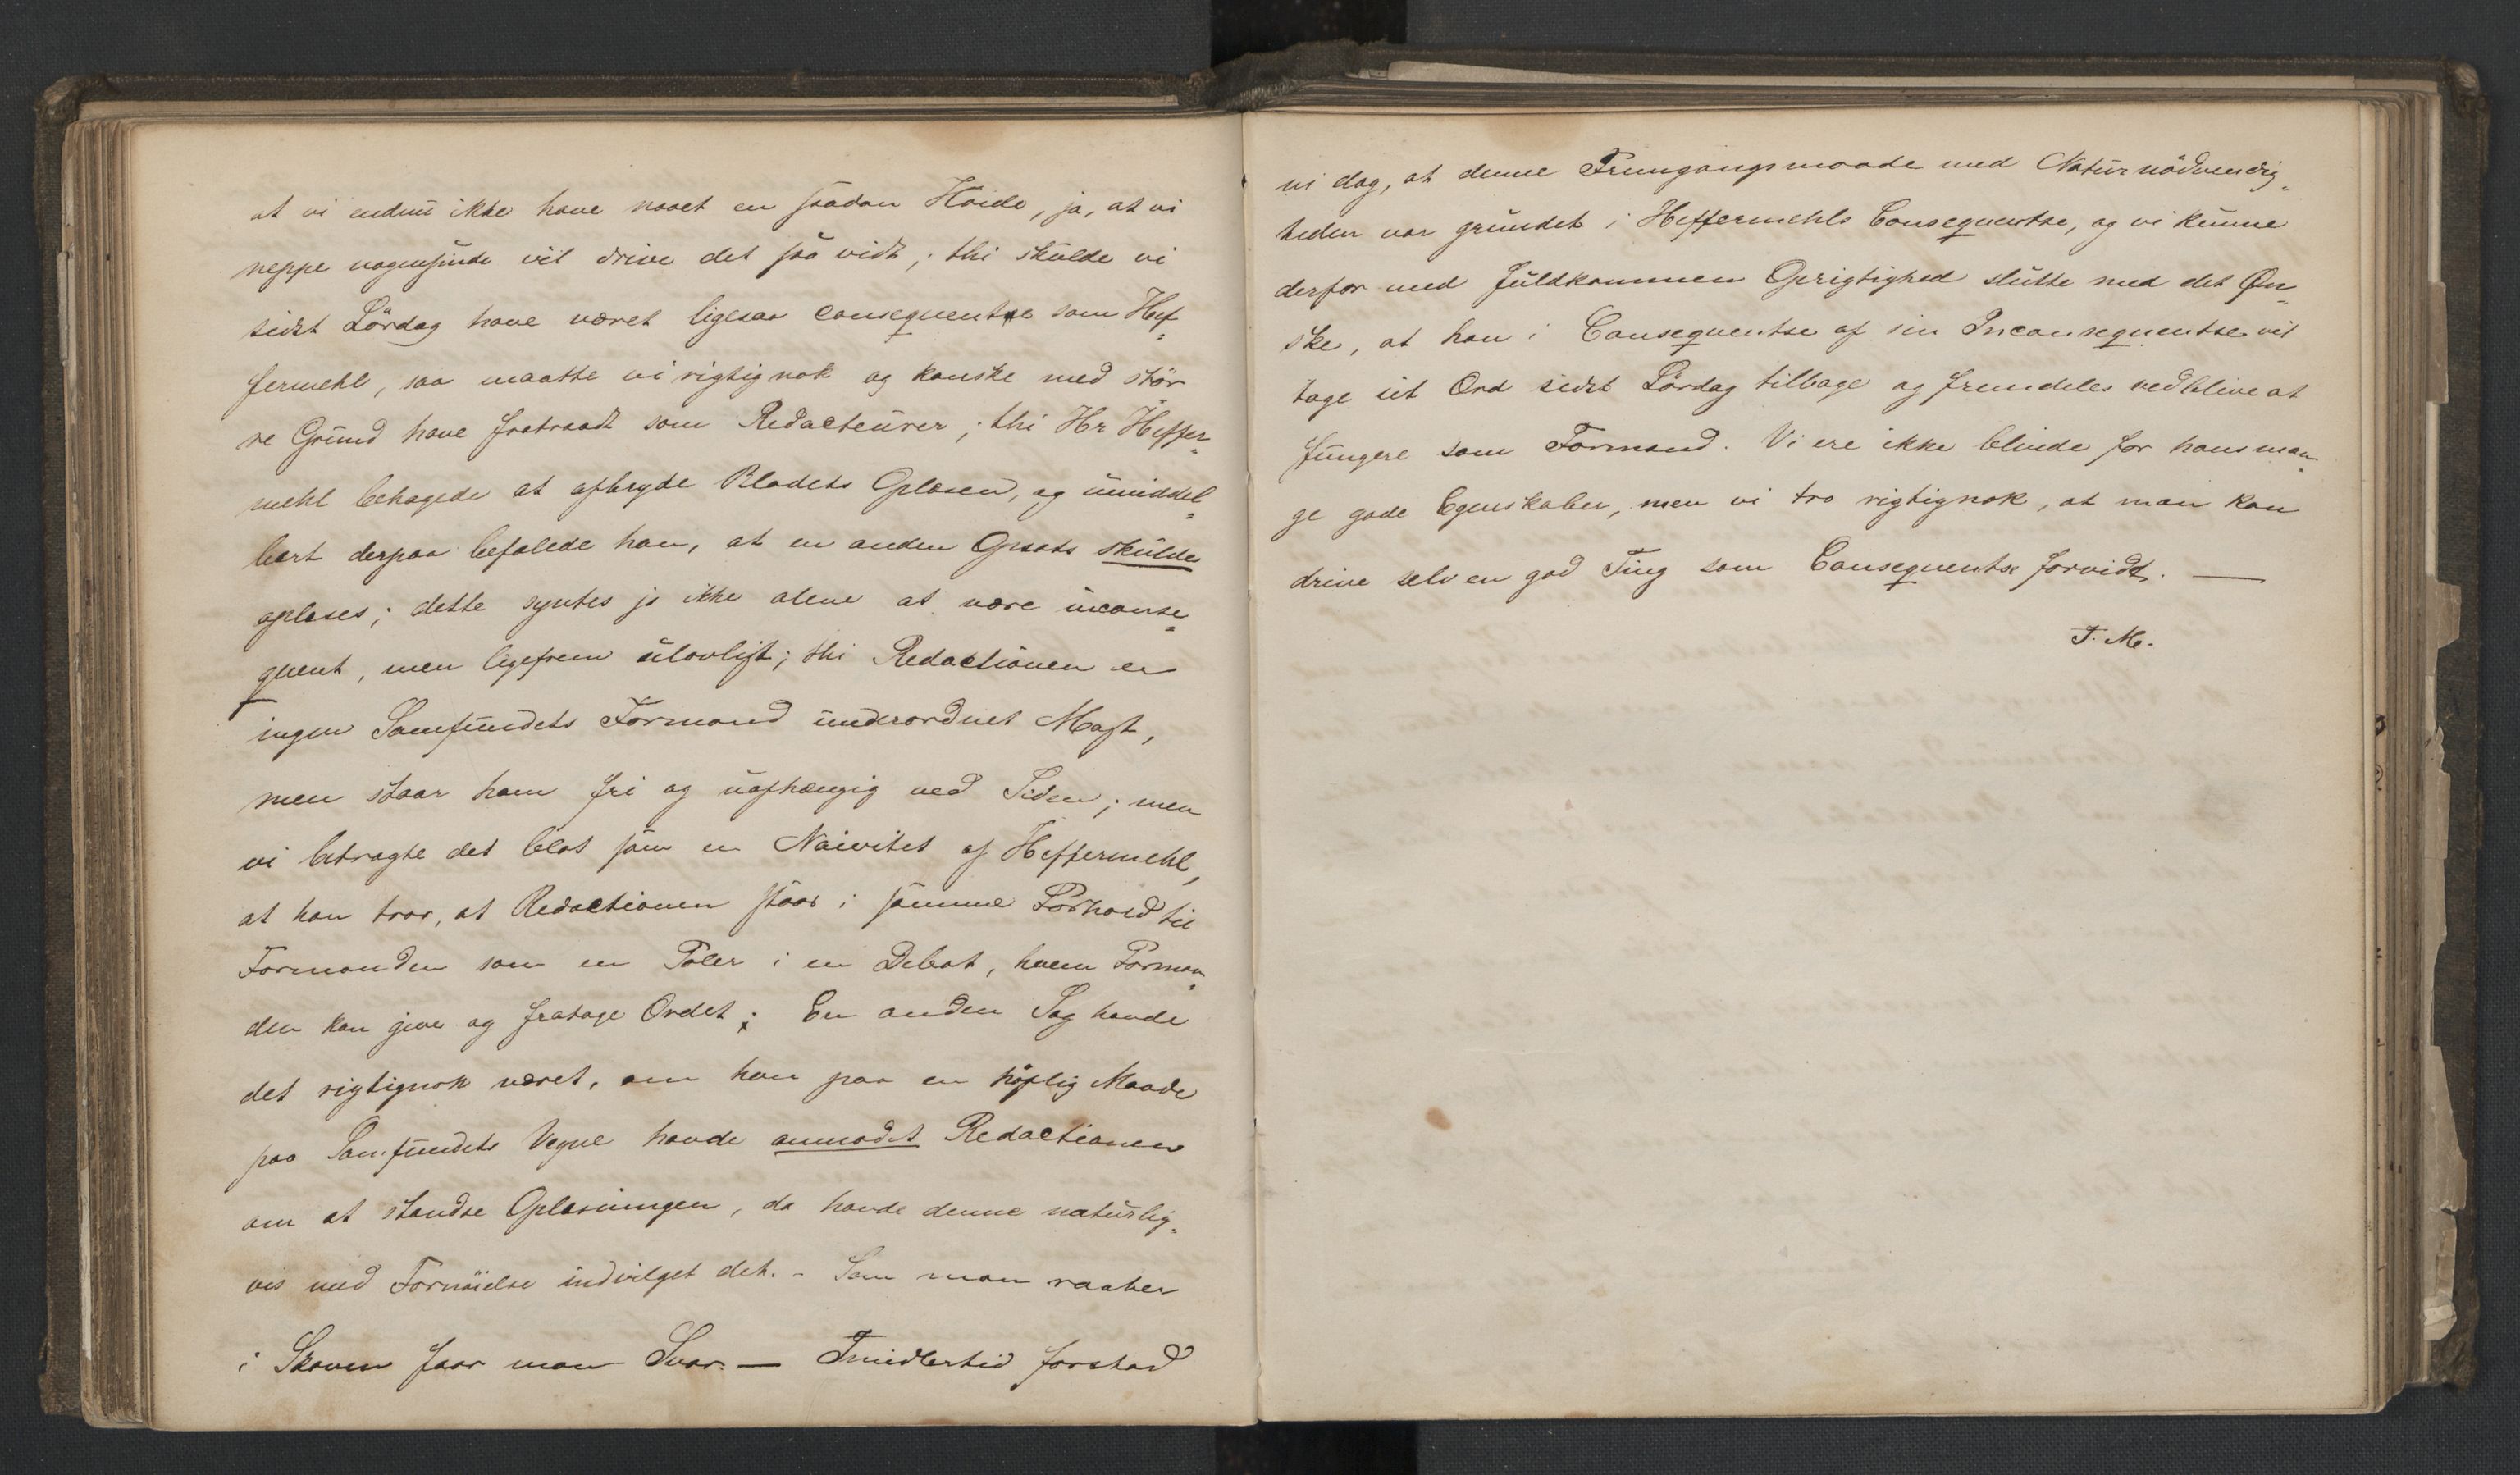 at vi endnu ikke have naaet en saadan Høide, ja, at vi
neppe nogensinde vil drive det saa vidt; thi skulde vi
sidst Lördag have været ligesaa consequentse som Hef„
fermehl, saa maatte vi rigtignok og kanske med stör
re Grund have fratraadt som Redacteurer; thi Hr Heffer„
mehl behagede at afbryde Bladets Oplæsen, og umiddel„
bart derpaa befalede han, at en anden Opsats skulde
oplæses; dette syntes jo ikke alene at være inconse„
quent, men ligefrem ulovligt; thi Redactionen er
ingen Samfundets Formand underordnet Magt,
men staar ham fri og uafhængig ved Siden; men
vi betragte det blot som en Naivitet af Heffermehl,
at han tror, at Redactionen staar i samme Forhold til
Formanden som en Taler i en Debat, hvem Forman„
den kan give og fratage Ordet; En anden Sag havde
det rigtignok været, om han paa en höflig Maade
paa Samfundets Vegne havde anmodet Redactionen
om at standse Oplæsningen, da havde denne naturlig„
vis med Fornöielse indvilget det. - Som man raaber
i Skoven faar man Svar. — Imidlertid forstod
vi dog, at denne Fremgangsmaade med Naturnödvendig„
heden var grundet i Heffermehls Consequentse, og vi kunne
derfor med fuldkommen Oprigtighed slutte med det Øn„
ske, at han i Consequentse af sin Inconsequentse vil
tage sit Ord sidst Lördag tilbage og fremdeles vedblive at
fungere som Formand. Vi ere ikke blinde for hans man„
ge gode Egenskaber, men vi tro rigtignok, at man kan
drive selv en god Ting som Consequentse forvidt. —
J. M.